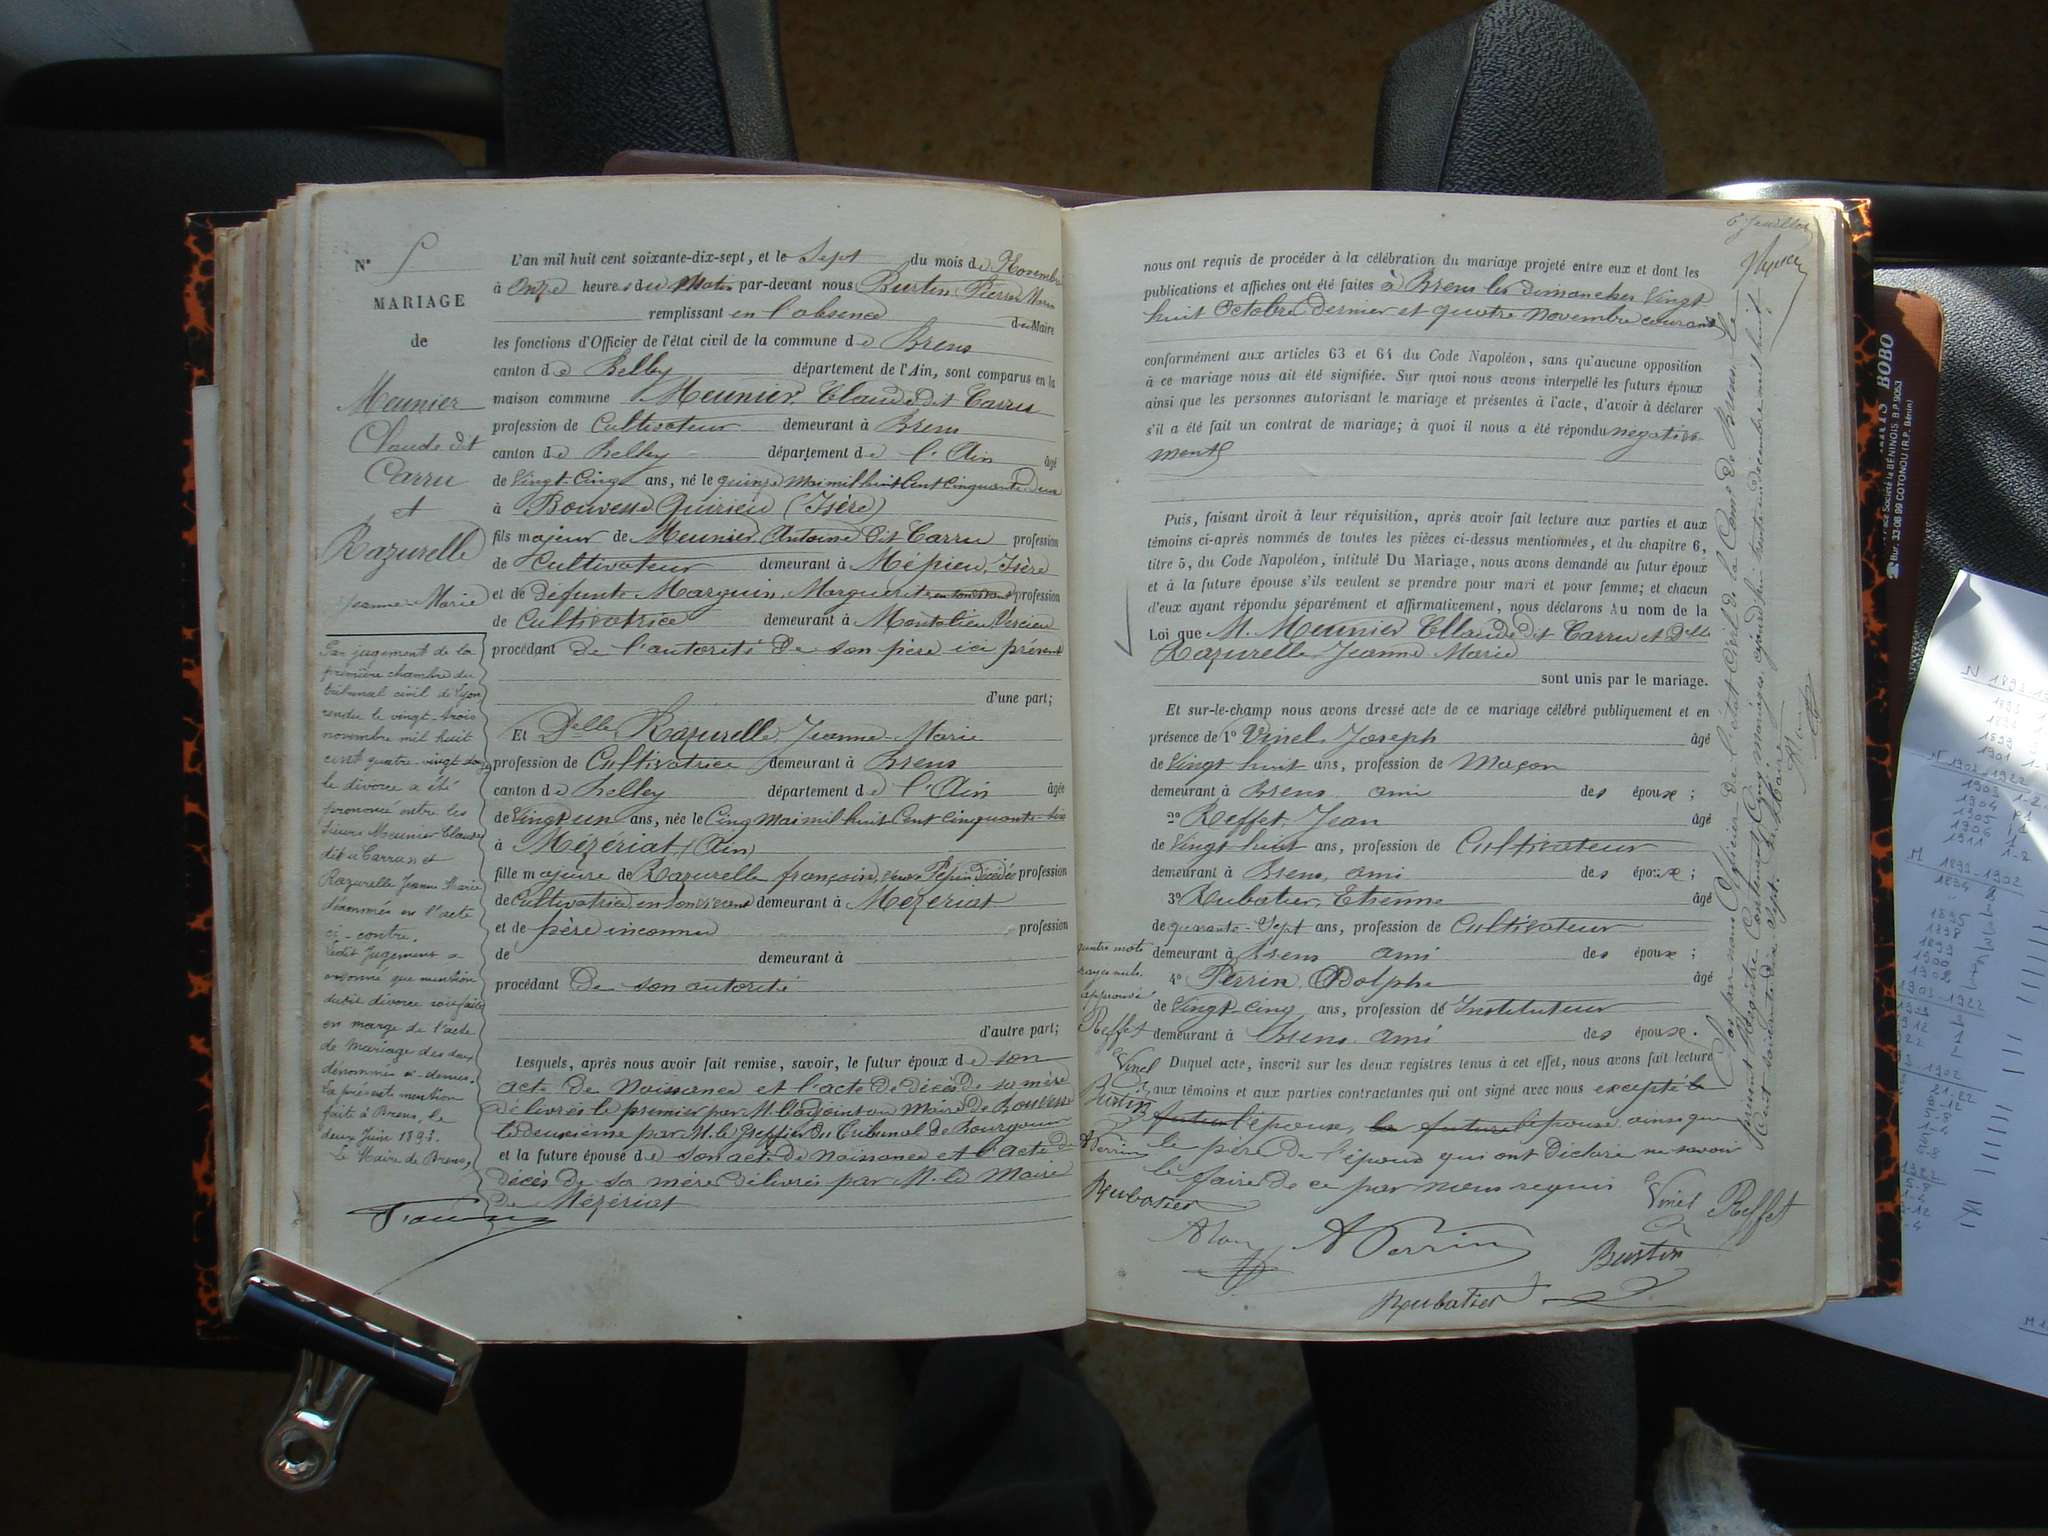 N° 5
MARIAGE
de
Meunier
Claude dit
Carru
et
Razurelle
Jeanne Marie
Par jugement de la
première chambre du
tribunal civil de Lyon
rendu le vingt-trois
novembre mil huit
cent quatre-vingt
le divorce a été
prononcé entre les
sieurs Meunier Claude
dit Carru et
Razurelle Jeanne Marie
dénommés en l'acte
ci-contre.
Ledit Jugement a
ordonné que mention
dudit divorce soit faite
en marge de l'acte
de mariage des deux
dénommés ci-dessus.
La présente mention
faite à Brens, le
deux Juin 1893.
Le Maire de Brens,
L'an mil huit cent soixante-dix-sept, et le Sept du mois de Novembre
à Onze heures du Matin par-devant nous Burtin Pierre
remplissant en l'absence du Maire
les fonctions d'Officier de l'état civil de la commune de Brens
canton de Belley département de l'Ain, sont comparus en la
maison commune Meunier Claude dit Carru
profession de Cultivateur demeurant à Brens
canton de Belley département de l'Ain âgé
de Vingt-Cinq ans, né le quinze Mai mil huit Cent Cinquante deux
à Bouvesse Quirieu (Isère)
fils majeur de Meunier Antoine dit Carru profession
de Cultivateur demeurant à Mépieu, Isère
et de défunte Marguin, Marguerite en son vivant profession
de Cultivatrice demeurant à Montalieu Vercieu
procédant de l'autorité de son père ici présent
d'une part;
Et Delle Razurelle Jeanne Marie
profession de Cultivatrice demeurant à Brens
canton de Belley département de l'Ain âgée
de Vingt un ans, née le Cinq Mai mil huit Cent Cinquante-six
à Mézériat (Ain)
fille majeure de Razurelle françoise, Veuve Pepin décédée profession
de Cultivatrice en son vivant demeurant à Mézériat
et de père inconnu profession
de demeurant à
procédant De son autorité
d'autre part;
Lesquels, après nous avoir fait remise, savoir, le futur époux de son
acte de Naissance et l'acte de décès de sa mère
délivrés le premier par M. l'adjoint au Maire de Bouvesse
le deuxième par M. le Greffier du Tribunal de Bourgouin
et la future épouse de son acte de Naissance et l'acte de
décès de sa mère délivrés par M. le Maire
de Mézériat
6e feuillet
nous ont requis de procéder à la célébration du mariage projeté entre eux et dont les
publications et affiches ont été faites à Brens les dimanches Vingt
huit Octobre dernier et quatre Novembre courant
conformément aux articles 63 et 64 du Code Napoléon, sans qu'aucune opposition
à ce mariage nous ait été signifiée. Sur quoi nous avons interpellé les futurs époux
ainsi que les personnes autorisant le mariage et présentes à l'acte, d'avoir à déclarer
s'il a été fait un contrat de mariage; à quoi il nous a été répondu négative
ment
Puis, faisant droit à leur réquisition, après avoir fait lecture aux parties et aux
témoins ci-après nommés de toutes les pièces ci-dessus mentionnées, et du chapitre 6,
titre 5, du Code Napoléon, intitulé Du Mariage, nous avons demandé au futur époux
et à la future épouse s'ils veulent se prendre pour mari et pour femme; et chacun
d'eux ayant répondu séparément et affirmativement, nous déclarons Au nom de la
Loi que M. Meunier Claude dit Carru et Delle
Razurelle Jeanne Marie
sont unis par le mariage.
Et sur-le-champ nous avons dressé acte de ce mariage célébré publiquement et en
présence de 1° Vinel Joseph âgé
de Vingt huit ans, profession de Maçon
demeurant à Brens ami des époux;
2° Reffet, Jean âgé
de Vingt huit ans, profession de Cultivateur
demeurant à Brens, ami des époux;
3° Rubatier, Etienne âgé
de quarante-Sept ans, profession de Cultivateur
demeurant à Brens ami des époux;
4° Perrin, Adolphe âgé
de Vingt-cinq ans, profession de Instituteur
demeurant à Brens ami des époux.
Duquel acte, inscrit sur les deux registres tenus à cet effet, nous avons fait lecture
aux témoins et aux parties contractantes qui ont signé avec nous excepté le
futur l'époux, la future l'épouse ainsi que
le père de l'époux qui ont déclaré ne savoir
le faire de ce par nous requis
quatre mots
rayés nuls
approuvé
Reffet
Vinel
Burtin
APerrin
Rubatier
Vinel Reffet
APerrin
Burtin
Rubatier
Clos par nous Officier de l'état civil de la Comne de Brens, le
présent Registre Contenant Cinq mariages aujourd'hui trente un décembre mil huit
Cent soixante dix sept. Le Maire
BOBO
BENINOIS B.P. 9053
COTONOU (R.P. Bénin)
1904
1905
1906
1911